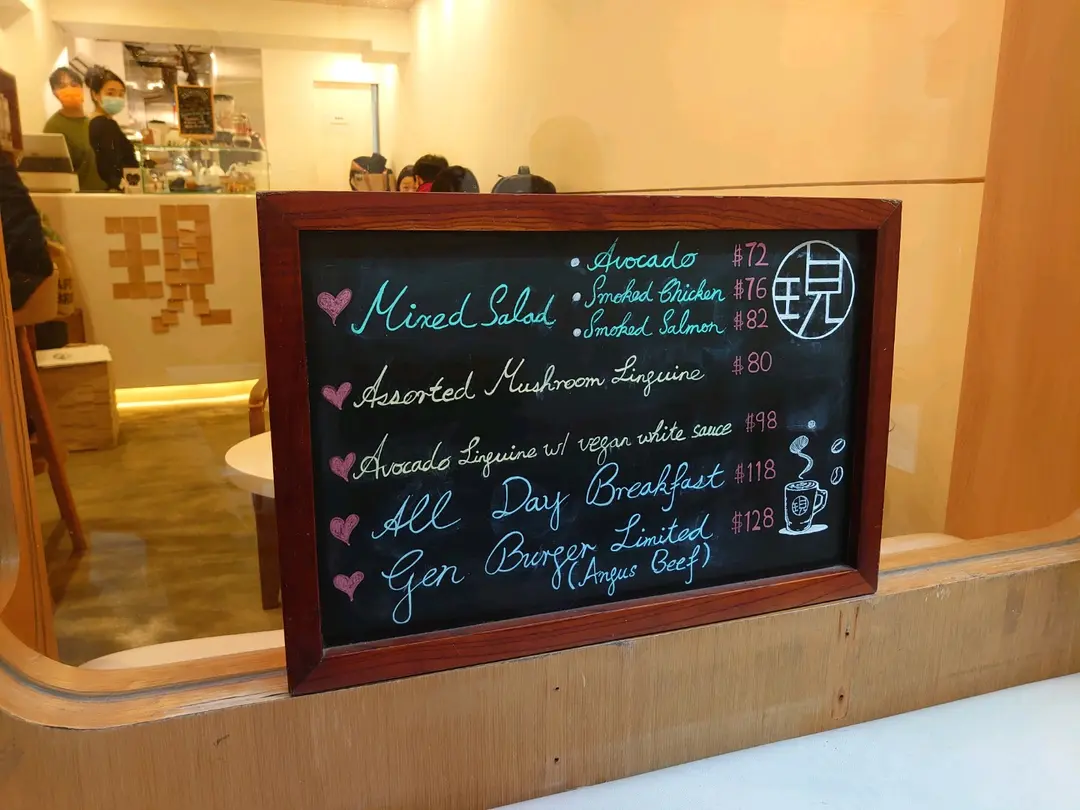 現
Mixed Salad
• Avocado $72
• Smoked Chicken $76
• Smoked Salmon $82
現
Assorted Mushroom Linguine $80
Avocado Linguine w/ vegan white sauce $98
All Day Breakfast $118
Gen Burger Limited $128
(Angus Beef)
現